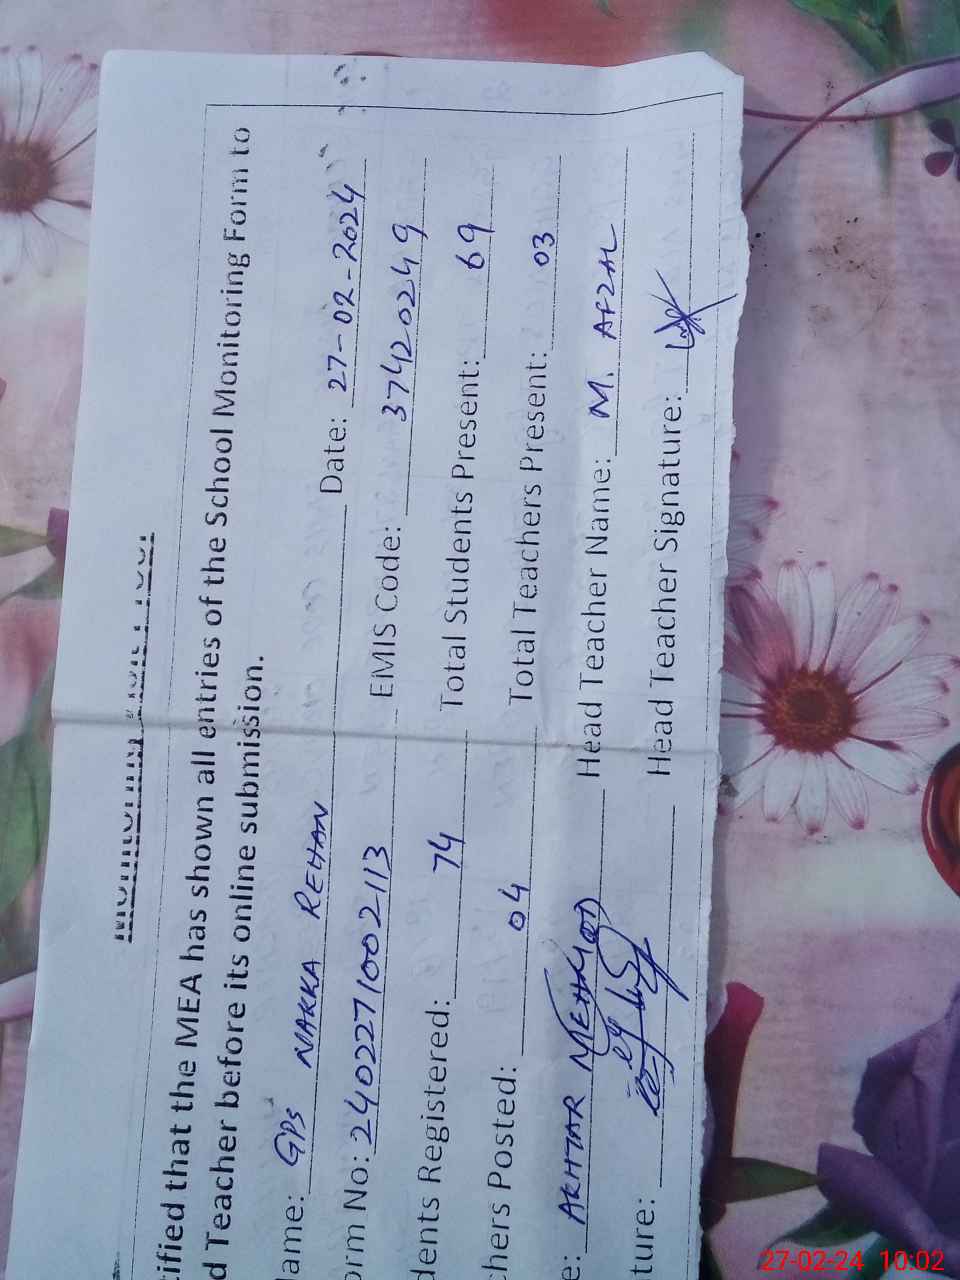 tified that the MEA has shown all entries of the School Monitoring Form to
d Teacher before its online submission.
ame: GPS NAKKA REHAN Date: 27-02-2024
orm No: 2402271002113 EMIS Code: 37420249
dents Registered: 74 Total Students Present: 69
chers Posted: 04 Total Teachers Present: 03
e: AKHTAR MEHMOOD Head Teacher Name: M. AFZAL
ture: Head Teacher Signature:
27-02-24 10:02